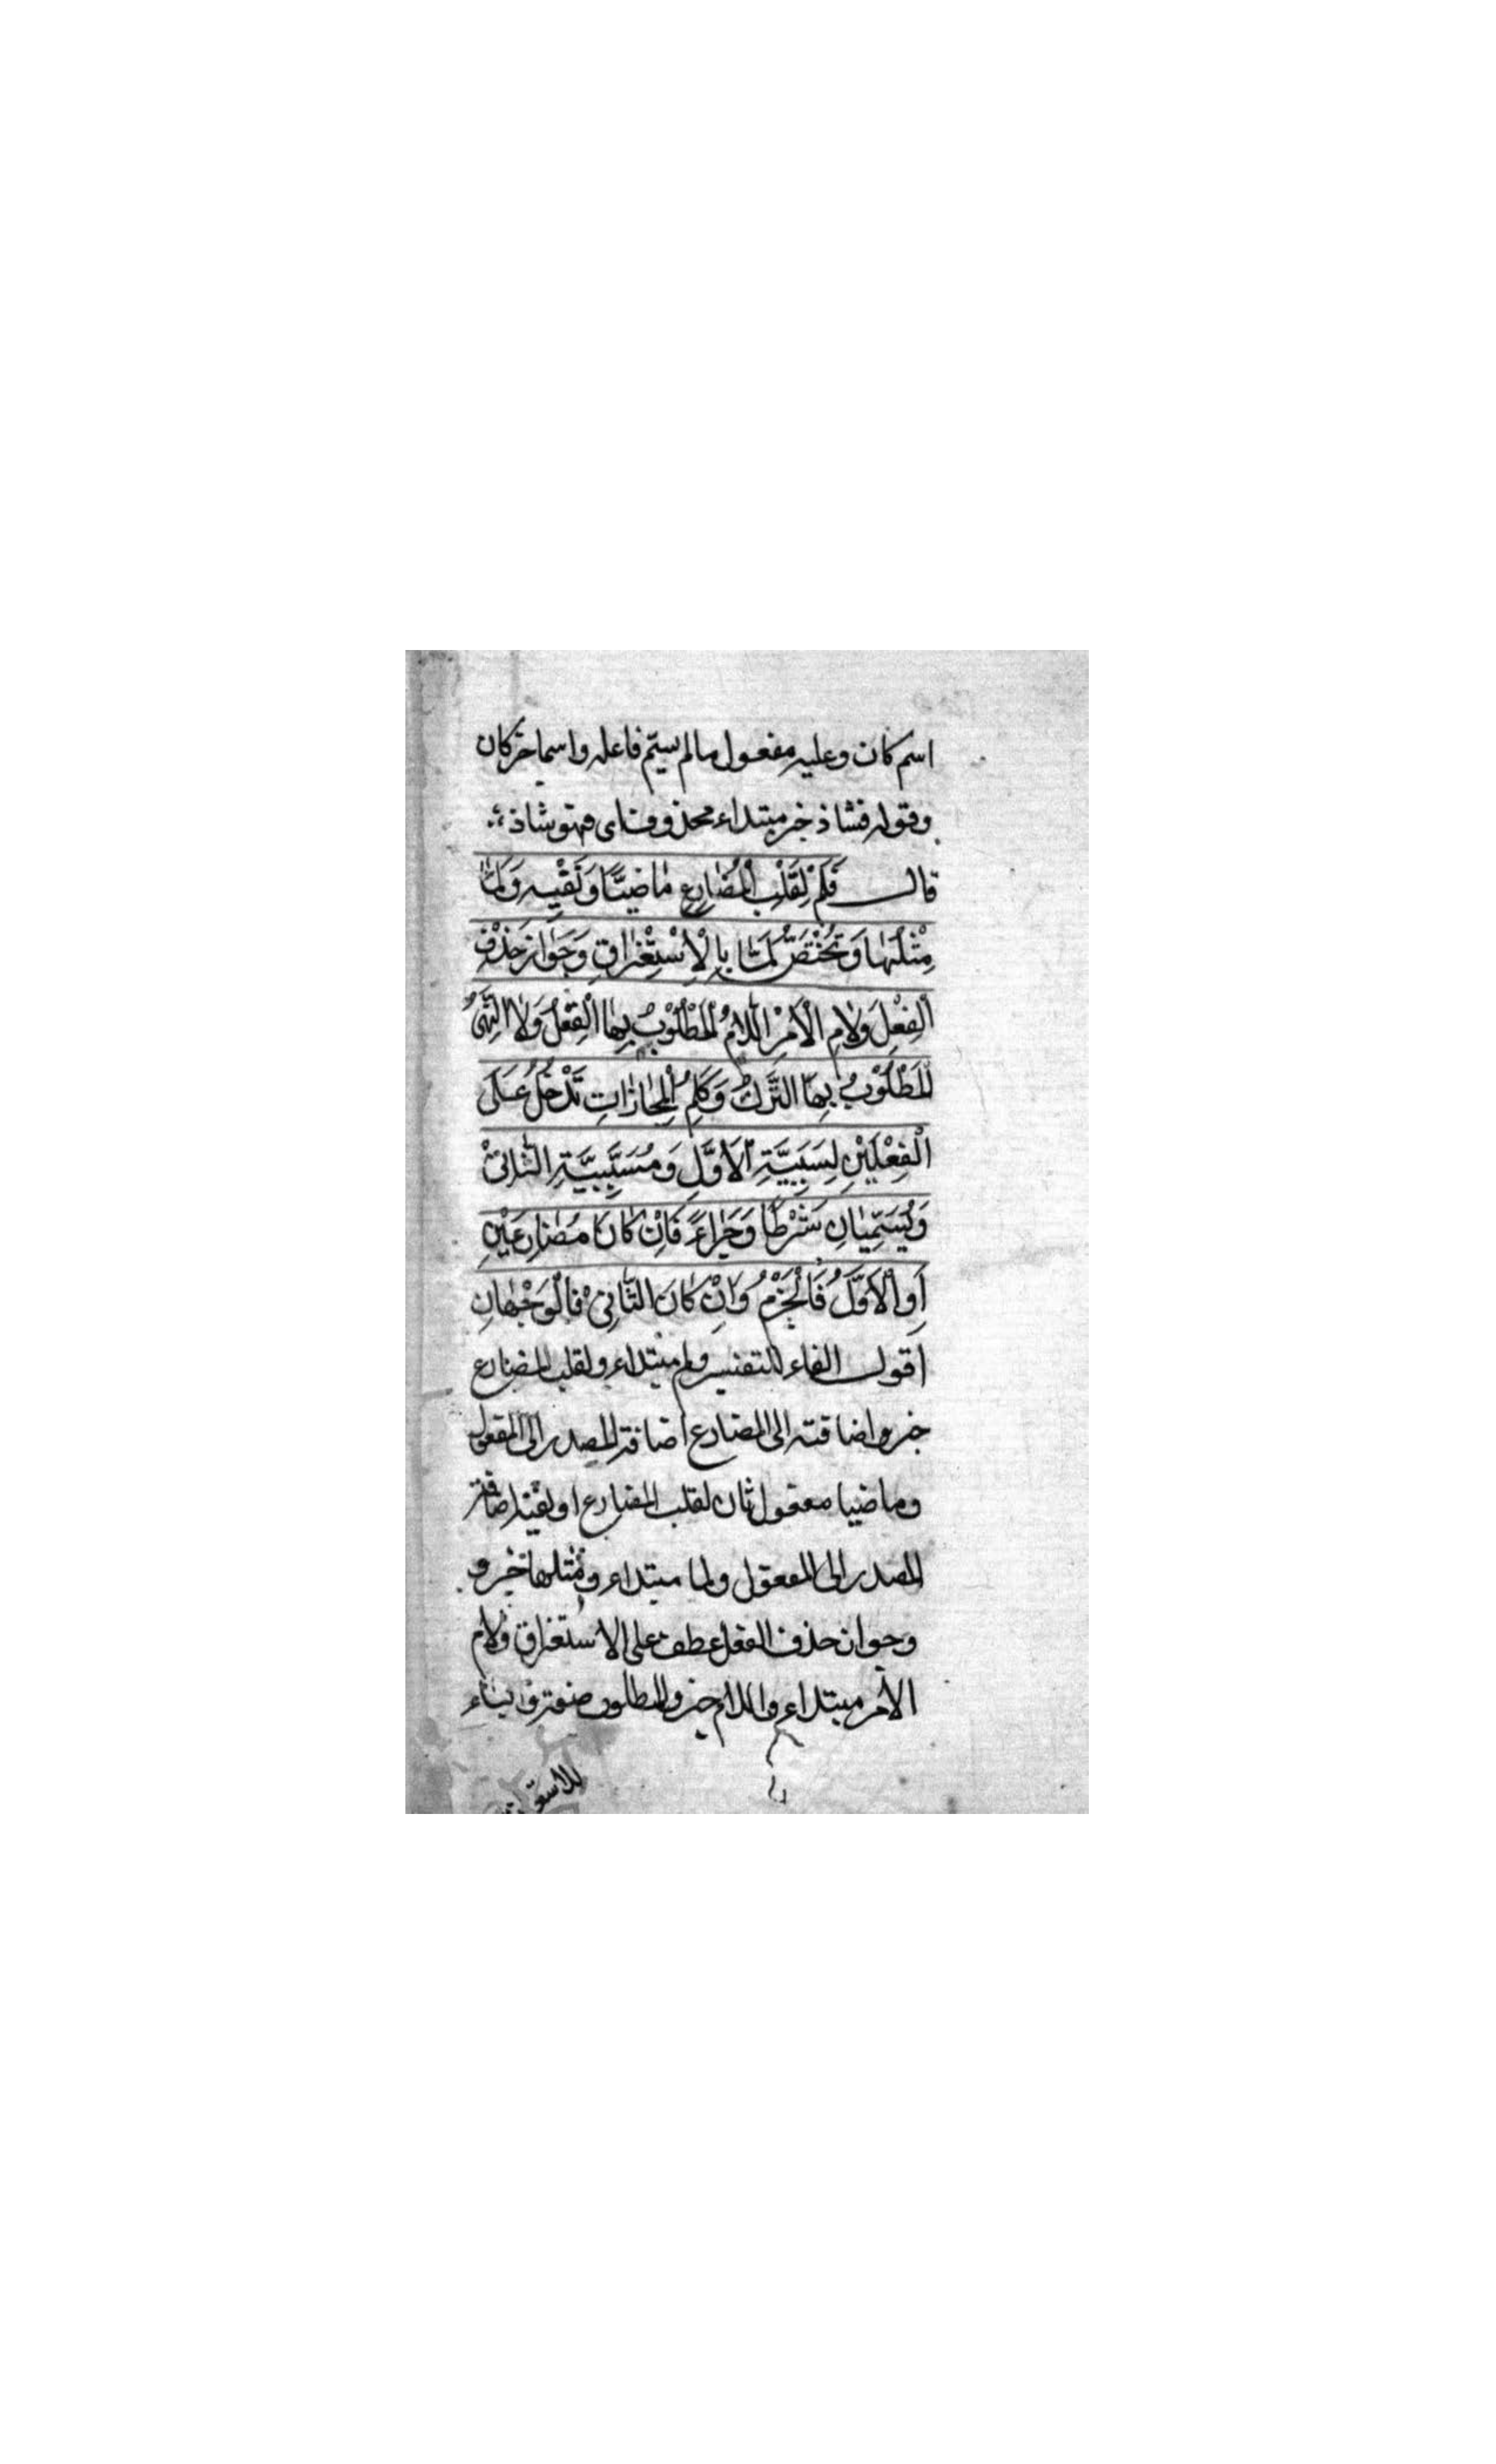 اسم كان وعليه مفعول مالم يسم فاعله واسما خبر كان
وقوله فشاذ خبر مبتداء محذوف اى فهو شاذ
قال فَلَمْ لِقَلْبِ الْمُضَارِعِ مَاضِيًّا وَنَفْيِهِ وَلَمَّا
مِثْلُهَا وَتَخْتَصُّ لَمَّا بِالْاِسْتِغْرَاقِ وَجَوَازِ حَذْفِ
الْفِعْلِ وَلَامِ الْاَمْرِ اللَّامُ الْمَطْلُوْبُ بِهَا الْفِعْلُ وَلَا النَّهْىُ
الْمَطْلُوْبُ بِهَا التَّرْكُ وَكَلِمُ الْمُجَازَاتِ تَدْخُلُ عَلَى
الْفِعْلَيْنِ لِسَبَبِيَّةِ الْاَوَّلِ وَمُسَبَّبِيَّةِ الثَّانِىْ
وَيُسَمَّيَانِ شَرْطًا وَجَزَاءً فَاِنْ كَانَا مُضَارِعَيْنِ
اَوِ الْاَوَّلُ فَالْجَزْمُ وَاِنْ كَانَ الثَّانِىْ فَالْوَجْهَانِ
اقول الفاء للتفسير ولم مبتداء ولقلب المضارع
خبره اضافته الى المضارع اضافة المصدر الى المفعول
وماضيا مفعول ثان لقلب المضارع او نفيه اضافة
المصدر الى المفعول ولما مبتداء ومثلها خبره
وجوان حذف الفعل عطف على الاستغراق ولام
الأمر مبتداء واللام خبره والمطلوب صفته والباء